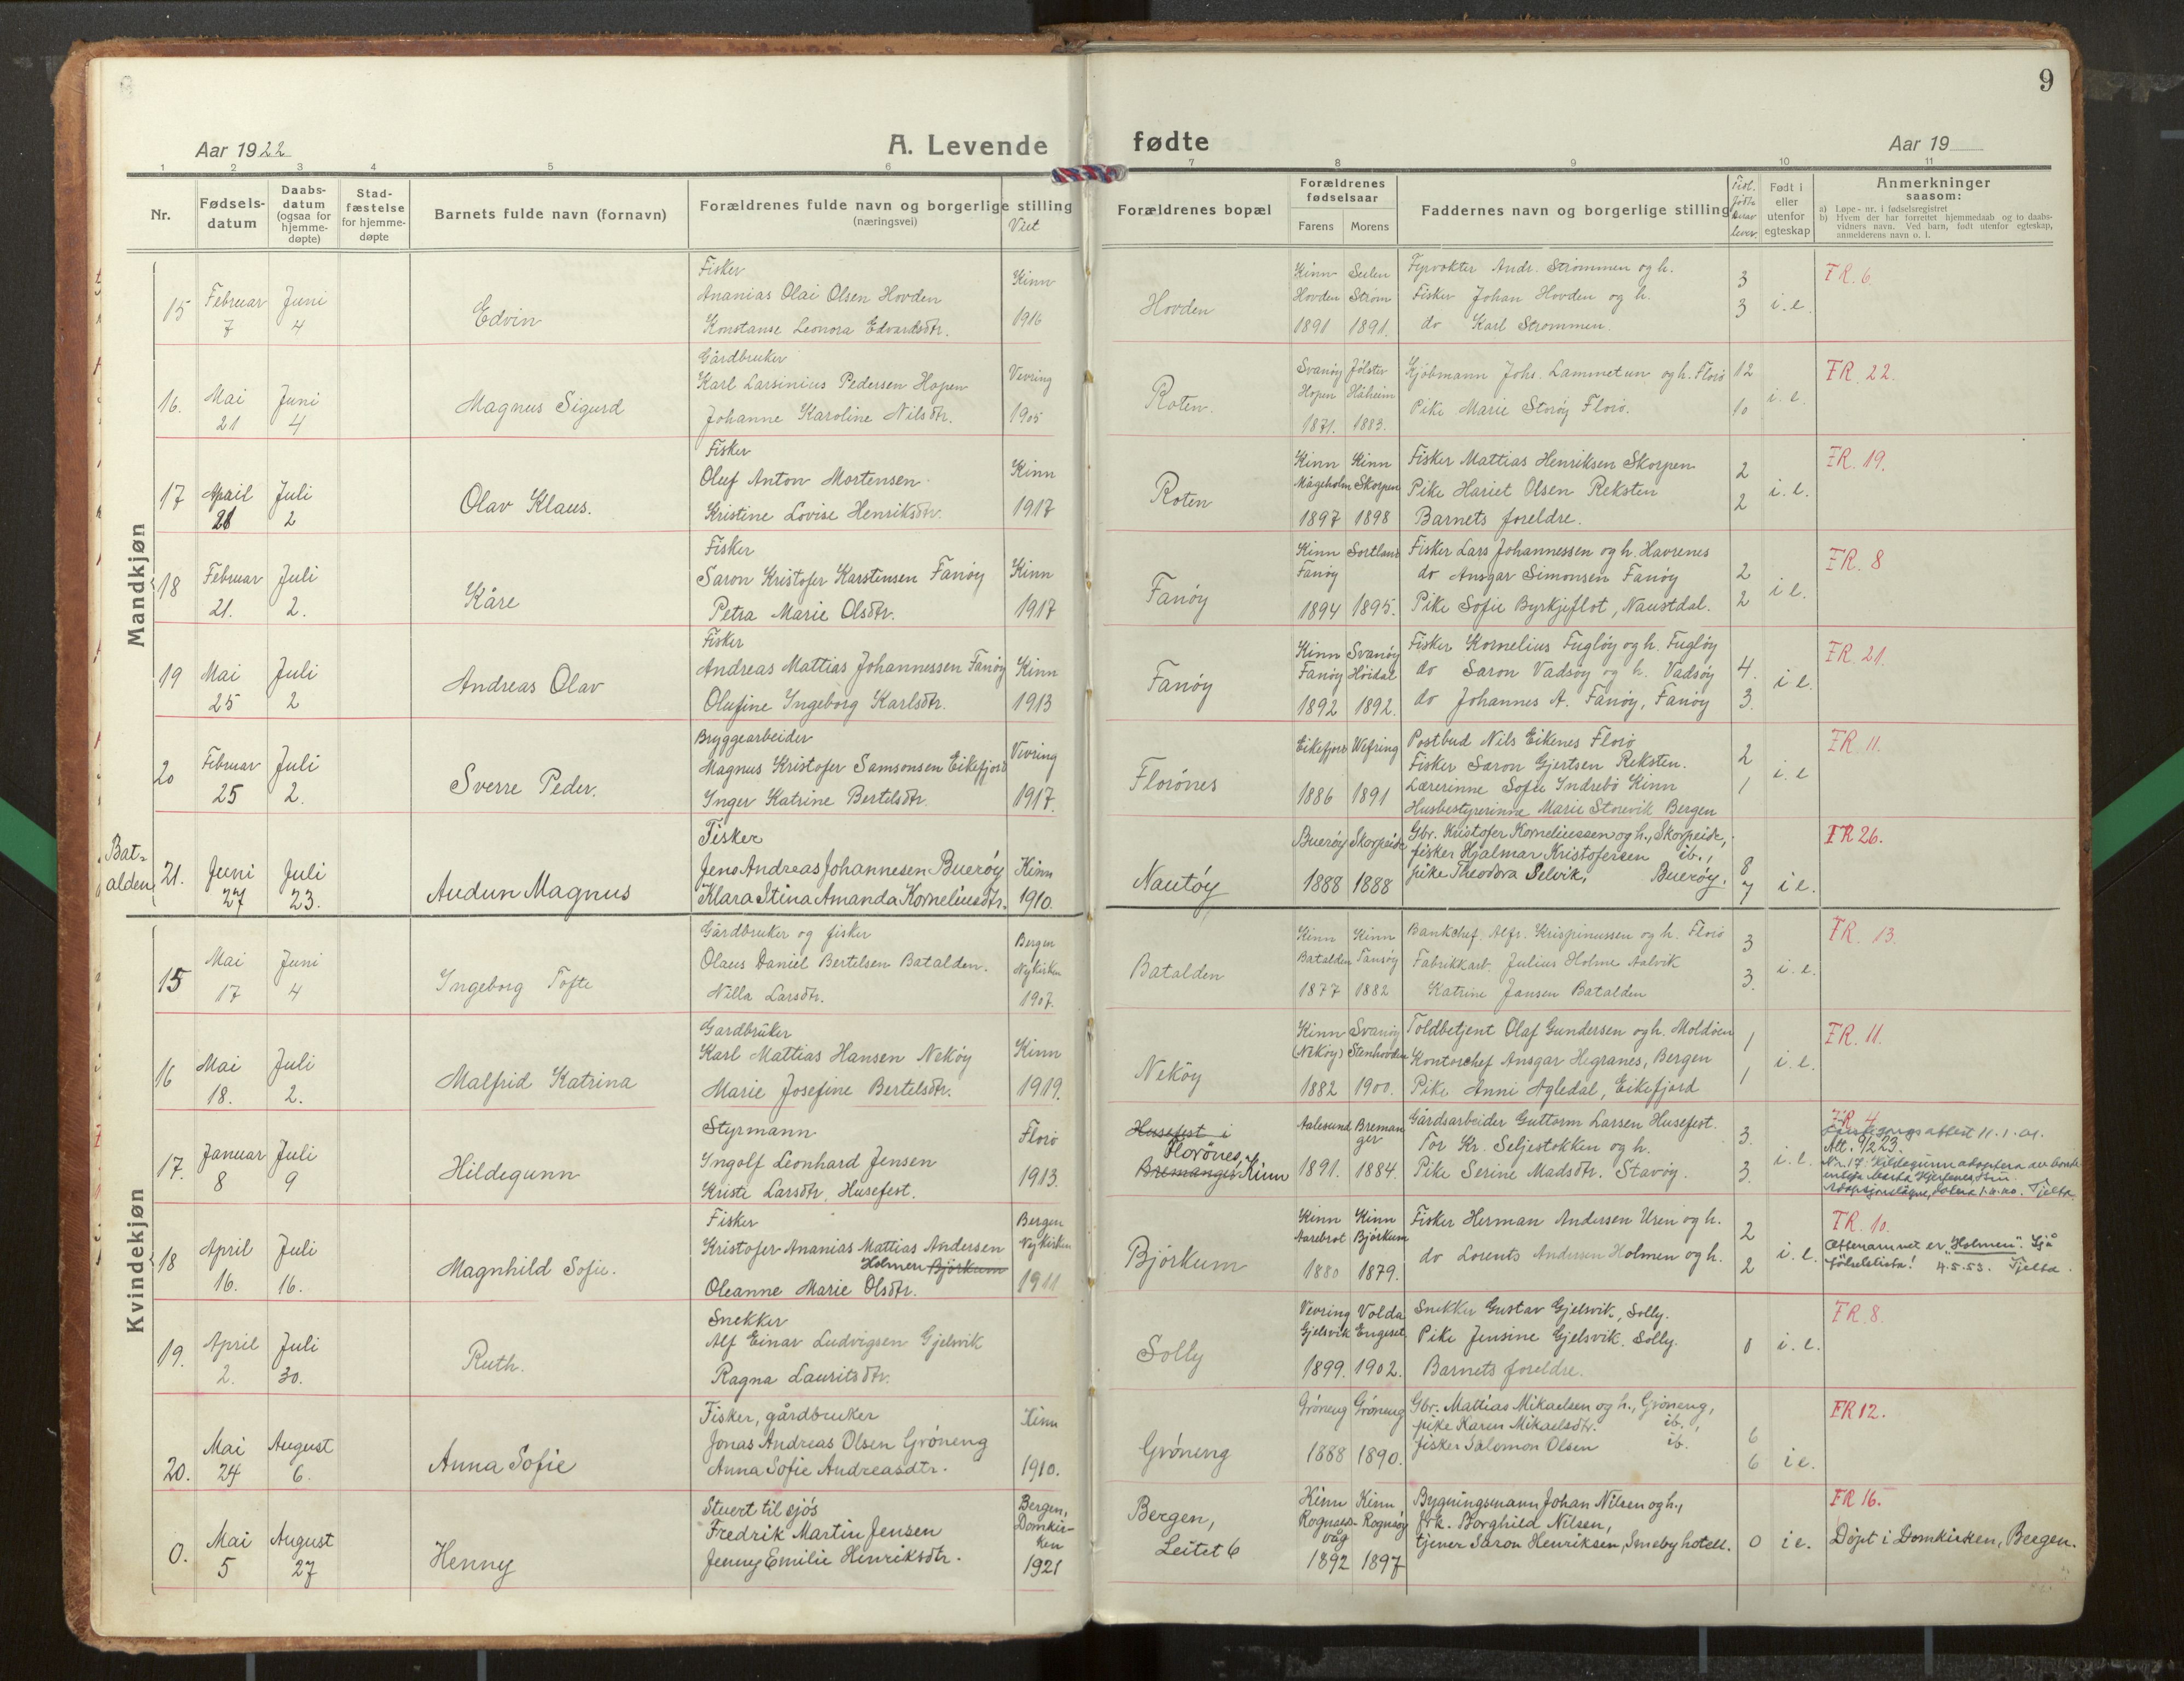 9
Aar 1922
A. Levende fødte
Aar 19
1 2 3 4 5 6 7 8 9 10 11
Nr.
Fødsels-
datum
Daabs-
datum
(ogsaa for
hjemme-
døpte)
Stad-
fæstelse
for hjemme-
døpte
Barnets fulde navn (fornavn)
Forældrenes fulde navn og borgerlige stilling
(næringsvei)
Viet
Forældrenes bopæl
Forældrenes
fødselsaar
Farens Morens
Faddernes navn og borgerlige stilling
fødte
lever.
Født i
eller
utenfor
egteskap
Anmerkninger
saasom:
a) Løpe-nr. i fødselsregistret
b) Hvem der har forrettet hjemmedaab og to daabs-
vidners navn. Ved barn, født utenfor egteskap,
anmelderens navn o. l.
Mandkjøn
15
Februar
7
Juni
4
Edvin
Fisker
Ananias Olai Olsen Hovden
Konstanse Leonora Edvardsdtr.
Kinn
1916
Hovden
Kinn
Hovden
1891
Selen
Strøm
1891.
Fyrvokter Andr. Strømmen og h.
Fisker Johan Hovden og h.
do Karl Strømmen.
3
3
i. e.
FR. 6.
16.
Mai
21
Juni
4
Magnus Sigurd
Gårdbruker
Karl Larsinius Pedersen Hopen
Johanne Karoline Nilsdtr.
Vevring
1905
Roten.
Svanöy
Hopen
1871.
Jølster
Håheim
1883.
Kjöbmann Johs. Lammetun og h. Florö
Pike Marie Storöy Florö.
12
10
i. e.
FR. 22.
17
April
21
Juli
2
Olav Klaus.
Fisker
Oluf Anton Mortensen
Kristine Lovise Henriksdtr.
Kinn
1917
Roten
Kinn
Mågeholm
1897
Kinn
Skorpen
1898
Fisker Mattias Henriksen Skorpen
Pike Hariet Olsen Reksten
Barnets foreldre.
2
2
i. e.
FR. 19.
18
Februar
21.
Juli
2.
Kåre
Fisker
Saron Kristofer Karstensen Fanöy
Petra Marie Olsdtr.
Kinn
1917
Fanöy
Kinn
Fanöy
1894
Sortland
1895.
Fisker Lars Johannessen og h. Havrenes
do Ansgar Simonsen Fanöy
Pike Sofie Byrkjeflot, Naustdal.
2
2
i e.
FR. 8
19
Mai
25
Juli
2
Andreas Olav
Fisker
Andreas Mattias Johannessen Fanöy
Olufine Ingeborg Karlsdtr.
Kinn
1913
Fanöy
Kinn
Fanöy
1892
Svanöy
Höidal
1892.
Fisker Kornelius Fuglöy og h. Fuglöy
do Saron Vadsöy og h. Vadsöy
do Johannes A. Fanöy, Fanöy
4.
3.
i e.
FR. 21.
20
Februar
25
Juli
2.
Sverre Peder.
Bryggearbeider
Magnus Kristofer Samsonsen Eikefjord
Inger Katrine Bertelsdtr.
Vevring
1917.
Florönes
Eikefjord
1886
Wefring
1891
Postbud Nils Eikenes Florö
Fisker Saron Gjertsen Reksten.
Lærerinne Sofie Indrebö Kinn
Husbestyrerinne Marie Storevik Bergen
2
1
i. e
FR. 11.
Bat-
alden
21.
Juni
27
Juli
23.
Audun Magnus
Fisker
Jens Andreas Johannesen Bueröy
Klara Stina Amanda Korneliusdtr.
Kinn
1910.
Nautöy
Bueröy
1888
Skorpeide
1888
Gbr. Kristofer Korneliussen og h., Skorpeide,
fisker Hjalmar Kristofersen ib.,
pike Theodora Selvik, Bueröy.
8
7
i e.
FR 26.
Kvindekjøn
15
Mai
17
Juni
4
Ingeborg Tofte
Gårdbruker og fisker
Olaus Daniel Bertelsen Batalden.
Nilla Larsdtr.
Bergen
Nykirken
1907.
Batalden
Kinn
Batalden
1877
Kinn
Tansöy
1882
Bankchef. Alfr. Krispinussen og h. Florö
Fabrikkarb. Julius Holme Aalvik
Katrine Jansen Batalden
3
3.
i. e.
FR. 13.
16
Mai
18.
Juli
2.
Malfrid Katrina
Gardbrüker
Karl Mattias Hansen Neköy
Marie Josefine Bertelsdtr.
Kinn
1919.
Neköy
Kinn
(Neköy)
1882
Svanöy
Stenhovden
1900.
Toldbetjent Olaf Gundersen og h. Moldöen
Kontorchef Ansgar Hegranes, Bergen
Pike Anni Agledal, Eikefjord
1
1
i. e.
FR. 11.
17.
Januar
8
Juli
9
Hildegunn
Styrmann
Ingolf Leonhard Jensen
Kriste Larsdtr. Husefest.
Florö
1913.
Husefest i
Florönes,
Bremanger Kinn
Aalesund
1891.
Breman
ger
1884.
Gårdsarbeider Guttorm Larsen Husefest.
Tor Kr. Seljestokken og h.
Pike Serine Madsdtr. Stavöy.
3.
3.
i. e.
FR. 4
11. 1. 01.
Att. 9/2 23.
Nr. 17. Hildegunn adoptera av
Tjelta
18
April
16.
Juli
16.
Magnhild Sofie.
Fisker
Kristofer Ananias Mattias Andersen
Holmen Björkum
Oleanne Marie Olsdtr.
Bergen
Nykirken
1911
Björkum
Kinn
Aarebrot
1880
Kinn
Björkum
1879.
Fisker Herman Andersen Uren og h.
do Lorents Andersen Holmen og h.
2
2
i. e.
FR. 10.
Ættenamnet er "Holmen". Sjå
fölselslista! 4.5.53. Tjelta.
19.
April
2.
Juli
30.
Ruth.
Snekker
Alf Einar Ludvigsen Gjelsvik
Ragna Lauritsdtr.
Solly
Vevring
Gjelsvik
1899.
Volda
Engeset
1902.
Snekker Gustav Gjelsvik, Solly.
Pike Jensine Gjelsvik. Solly.
Barnets foreldre.
0
i. e.
FR. 8.
20.
Mai
24
August
6.
Anna Sofie
Fisker, gårdbruker
Jonas Andreas Olsen Gröneng
Anna Sofie Andreasdtr.
Kinn
1910.
Gröneng
Gröneng
1888
Gröneng
1890.
Gbr. Mattias Mikaelsen og h., Gröneng,
pike Karen Mikaelsdtr. ib.,
fisker Salomon Olsen ib.
6
6
i e.
FR 12.
0.
Mai
5
August
27
Henny
Stuert til sjös
Fredrik Martin Jensen
Jenny Emilie Henriksdtr.
Bergen,
Domkir-
ken
1921
Bergen,
Leitet 6
Kinn
Rognaes-
våg
1892
Kinn
Rognsöy
1897
Bygningsmann Johan Nilsen og h.,
frk. Borghild Nilsen,
tjener Saron Henriksen, Smeby hotell.
0
i e.
FR 16.
Döpt i Domkirken, Bergen.